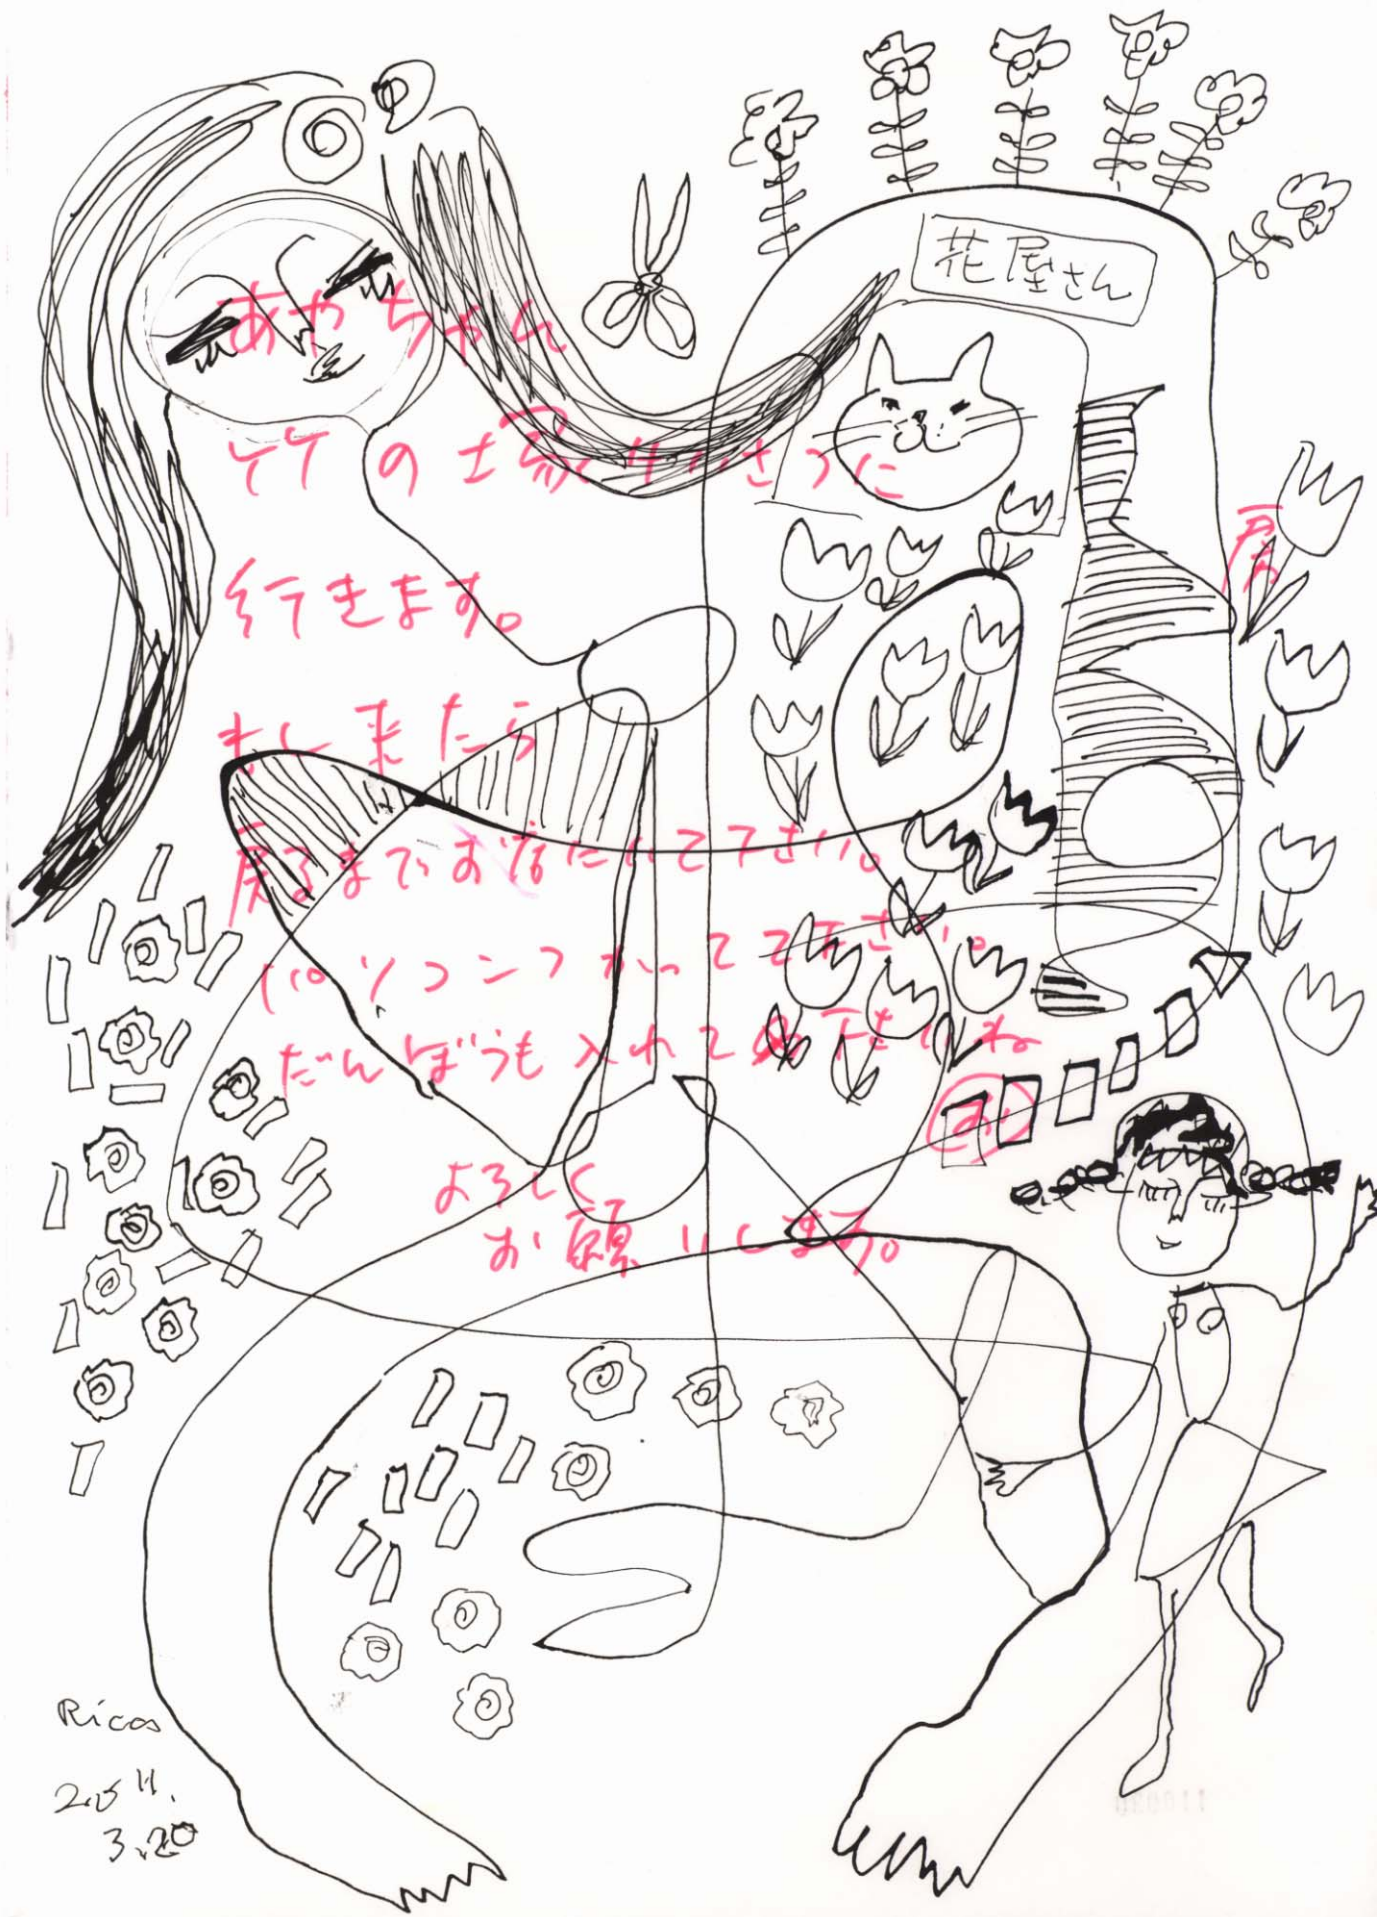 花屋さん
あやちゃん
竹の塚あいさつに
行きます。
もし来たら
戻るまでお
下さい。
パソコンつかってて下さい。
だんぼうも入れて下さいね
よろしく
お願いします。
Ricas
2011.
3.20